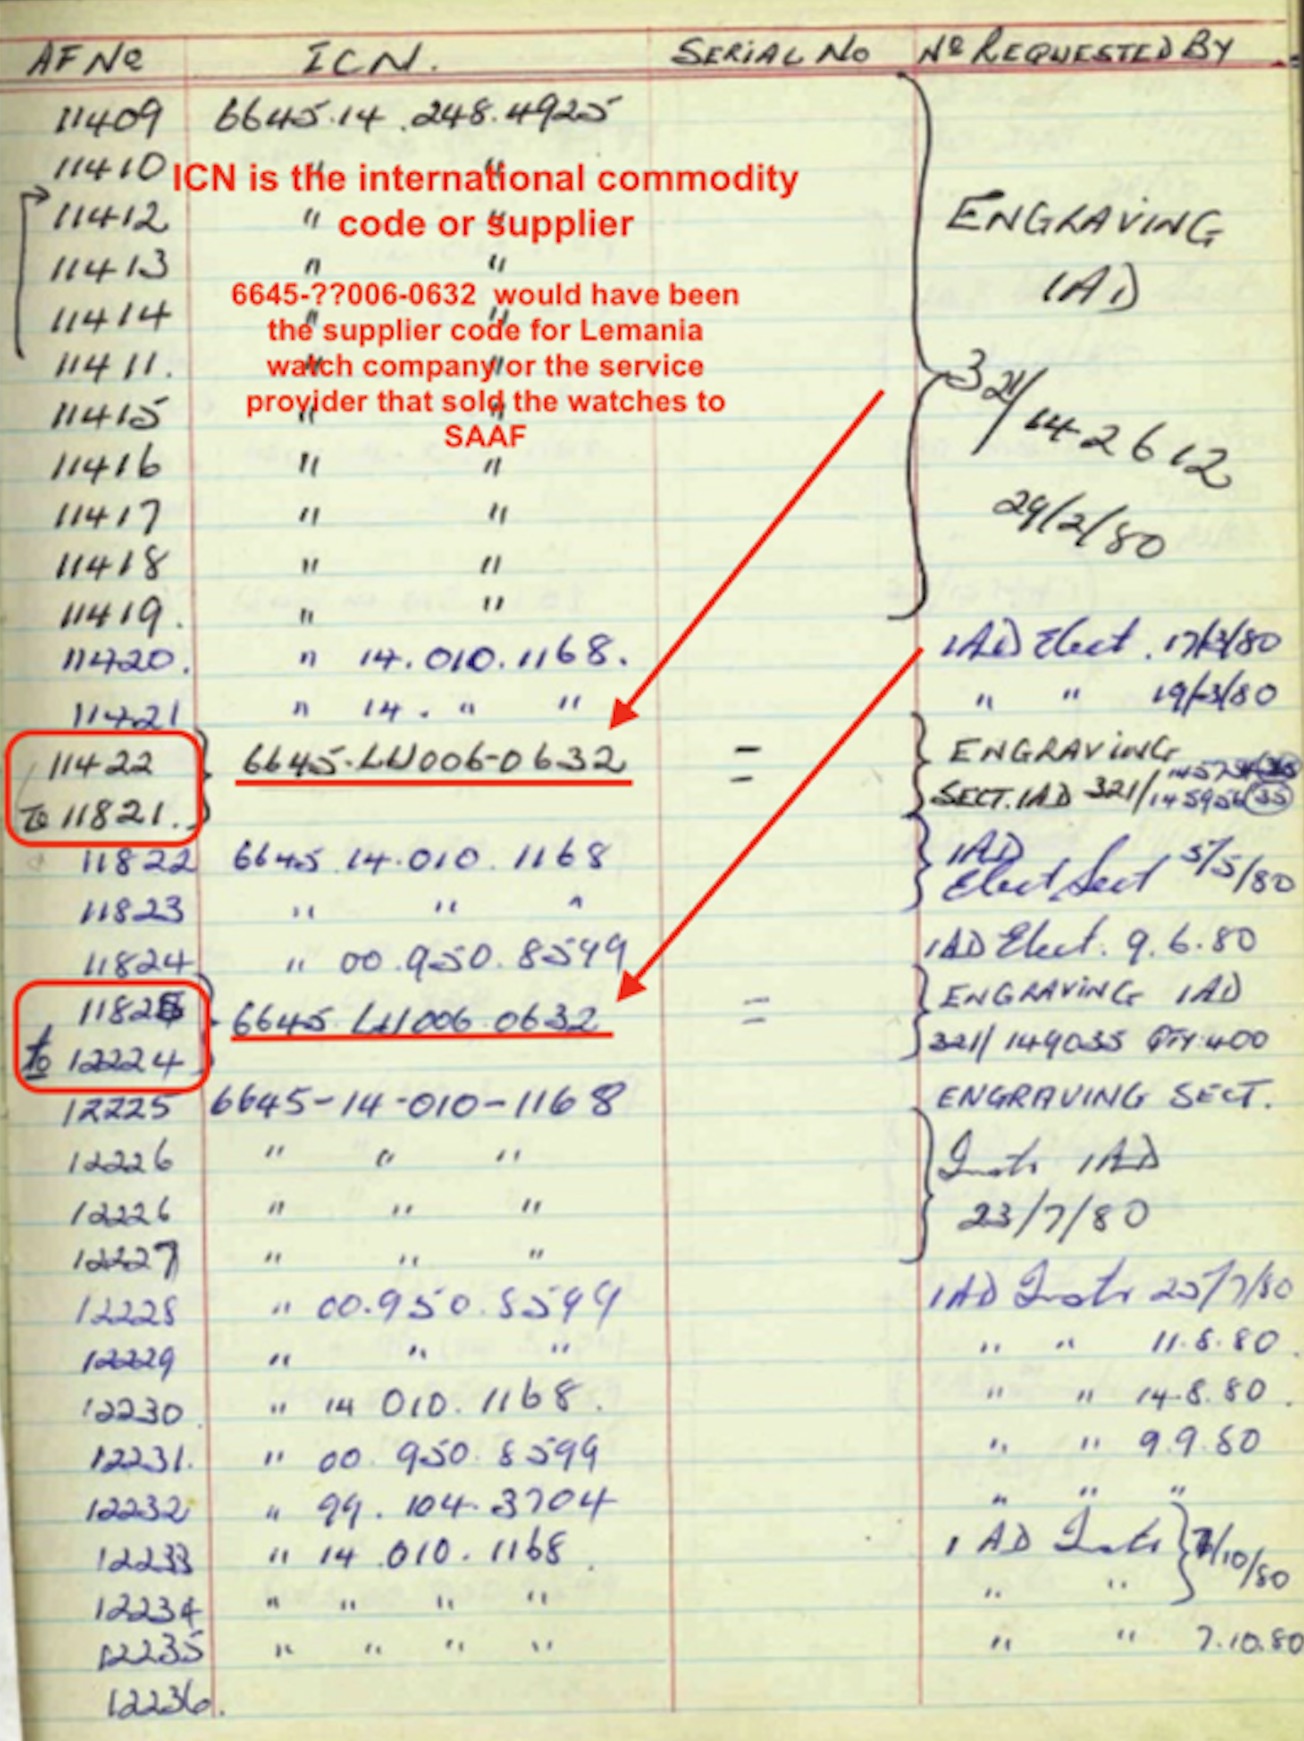 AF No ICN. SERIAL No No REQUESTED BY
11409 6645.14.248.4925
11410 " "
ICN is the international commodity
code or supplier
11412 " "
ENGRAVING
11413 " "
1AD
6645-??006-0632 would have been
the supplier code for Lemania
watch company or the service
provider that sold the watches to
SAAF
11414 " "
11411. " "
321/142612
11415 " "
11416 " "
11417 " "
29/2/80
11418 " "
11419. " "
11420. " 14.010.1168. 1AD Elect. 17/3/80
11421 " 14. " " " " 19/3/80
11422 6645-LU006-0632 = ENGRAVING
To 11821. SECT. 1AD 321/ 145956 (35)
11822 6645.14.010.1168 1AD
Elect Sect 5/5/80
11823 " " "
11824 " 00.950.8599 1AD Elect. 9.6.80
11825 6645 LU006.0632 = ENGRAVING 1AD
to 12224 321/149035 QTY 400
12225 6645-14-010-1168 ENGRAVING SECT.
12226 " " " Instr 1AD
12226 " " " 23/7/80
12227 " " "
12228 " 00.950.8599 1AD Instr 25/7/80
12229 " " " " " 11.8.80
12230. " 14 010.1168. " " 14.8.80.
12231. " 00.950.8599 " " 9.9.80
12232 " 99.104.3704 " " "
12233 " 14.010.1168. 1AD Instr /10/80
12234 " " " " " "
12235 " " " " " " 7.10.80
12236.